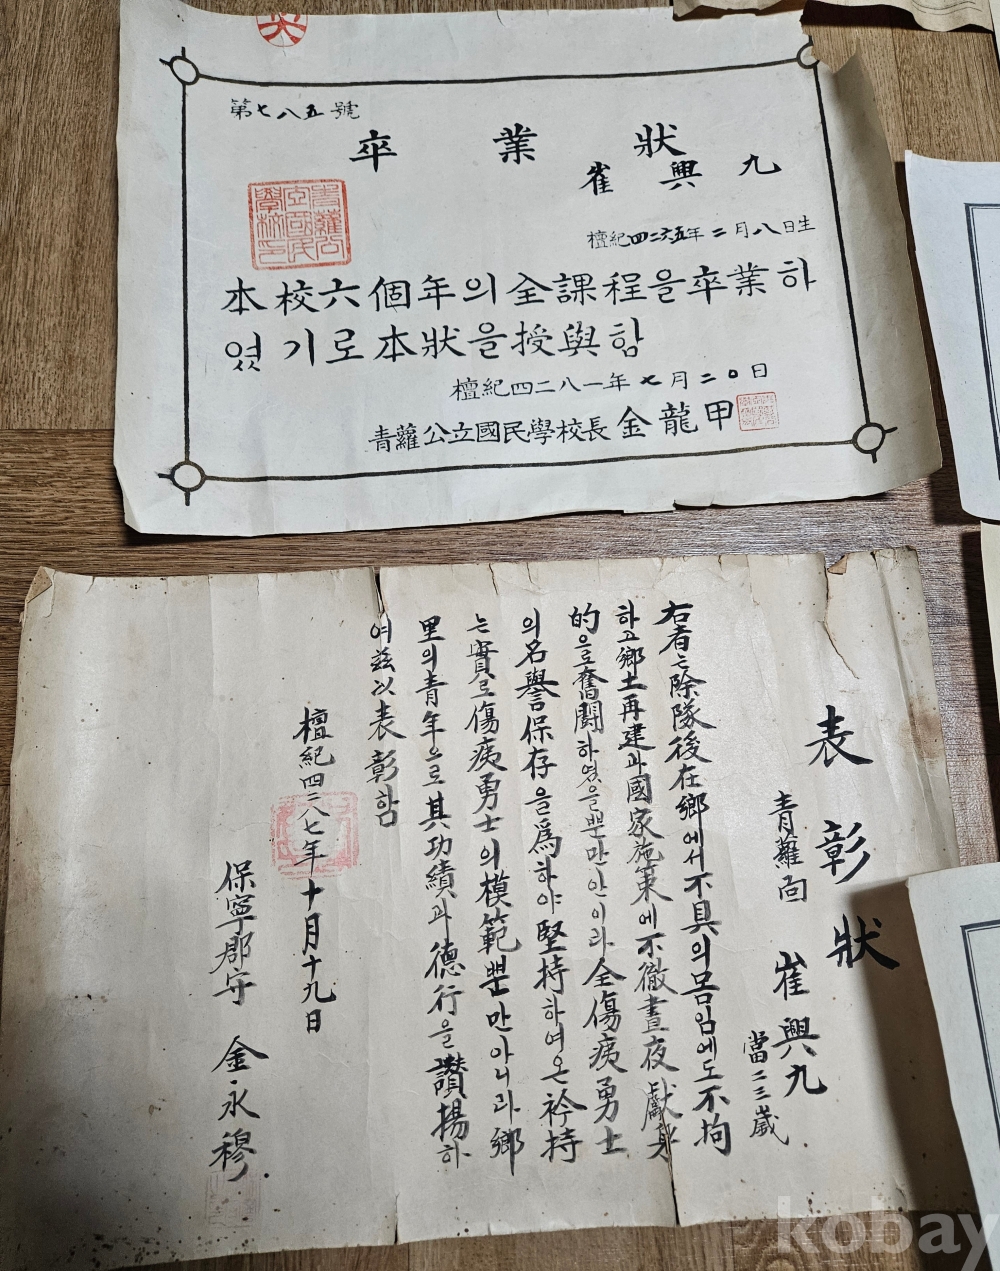 第七八五號
卒業狀
崔興九
檀紀四二六五年二月八日生
本校六個年의全課程을卒業하
였기로本狀을授與함
檀紀四二八一年七月二〇日
青蘿公立國民學校長 金龍甲
青蘿公立國民學校印
表彰狀
青蘿面 崔興九
當二三歲
右者는除隊後在鄕에서不具의몸임에도不拘
하고鄕土再建과國家施策에不徹晝夜獻身
的으로奮鬪하였을뿐만안이라全傷痍勇士
의名譽保存을爲하야堅持하여온衿持
는實로傷痍勇士의模範뿐만아니라鄕
里의青年으로其功績과德行을讚揚하
여玆以表彰함
檀紀四二八七年十月十九日
保寧郡守 金永穆
kobay